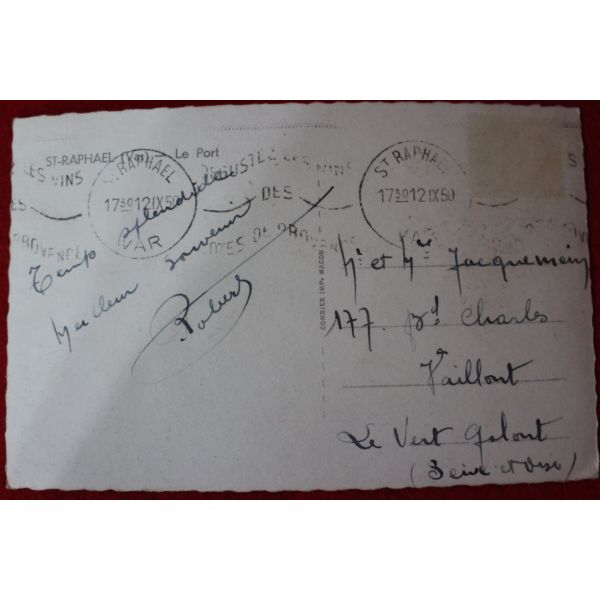 ST-RAPHAËL (Var) — Le Port
DÉGUSTEZ LES VINS
DES
CÔTES DE PROVENCE
ST RAPHAEL
17 30 12 IX 50
VAR
ST RAPHAEL
17 30 12 IX 50
VAR
Temps splendide
Meilleur souvenir
Robert
COMBIER IMP. MACON
Mr et Mme Jacquemein
177 Bd Charles
Vaillant
Le Vert Galant
(Seine et Oise)